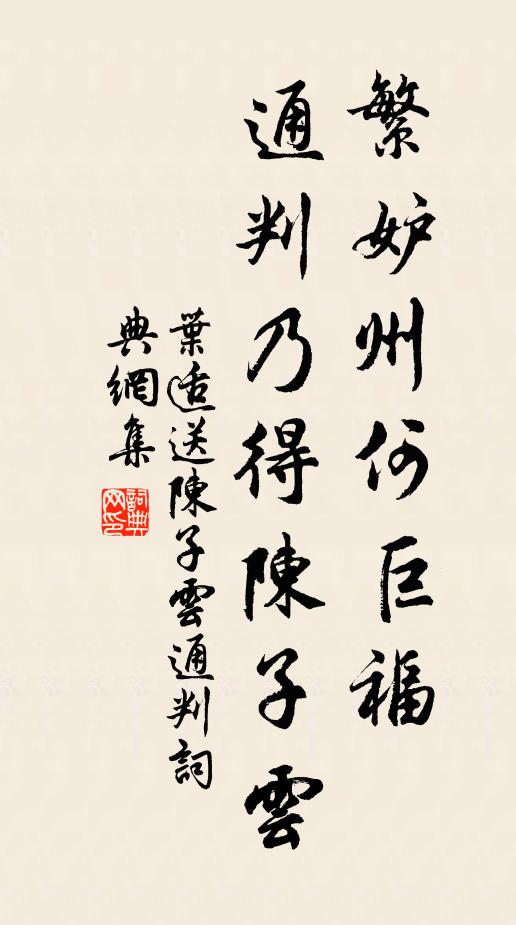 繁妒州何巨福
通判乃得陳子雲
葉適送陳子雲通判詞
典網集
詞典网印